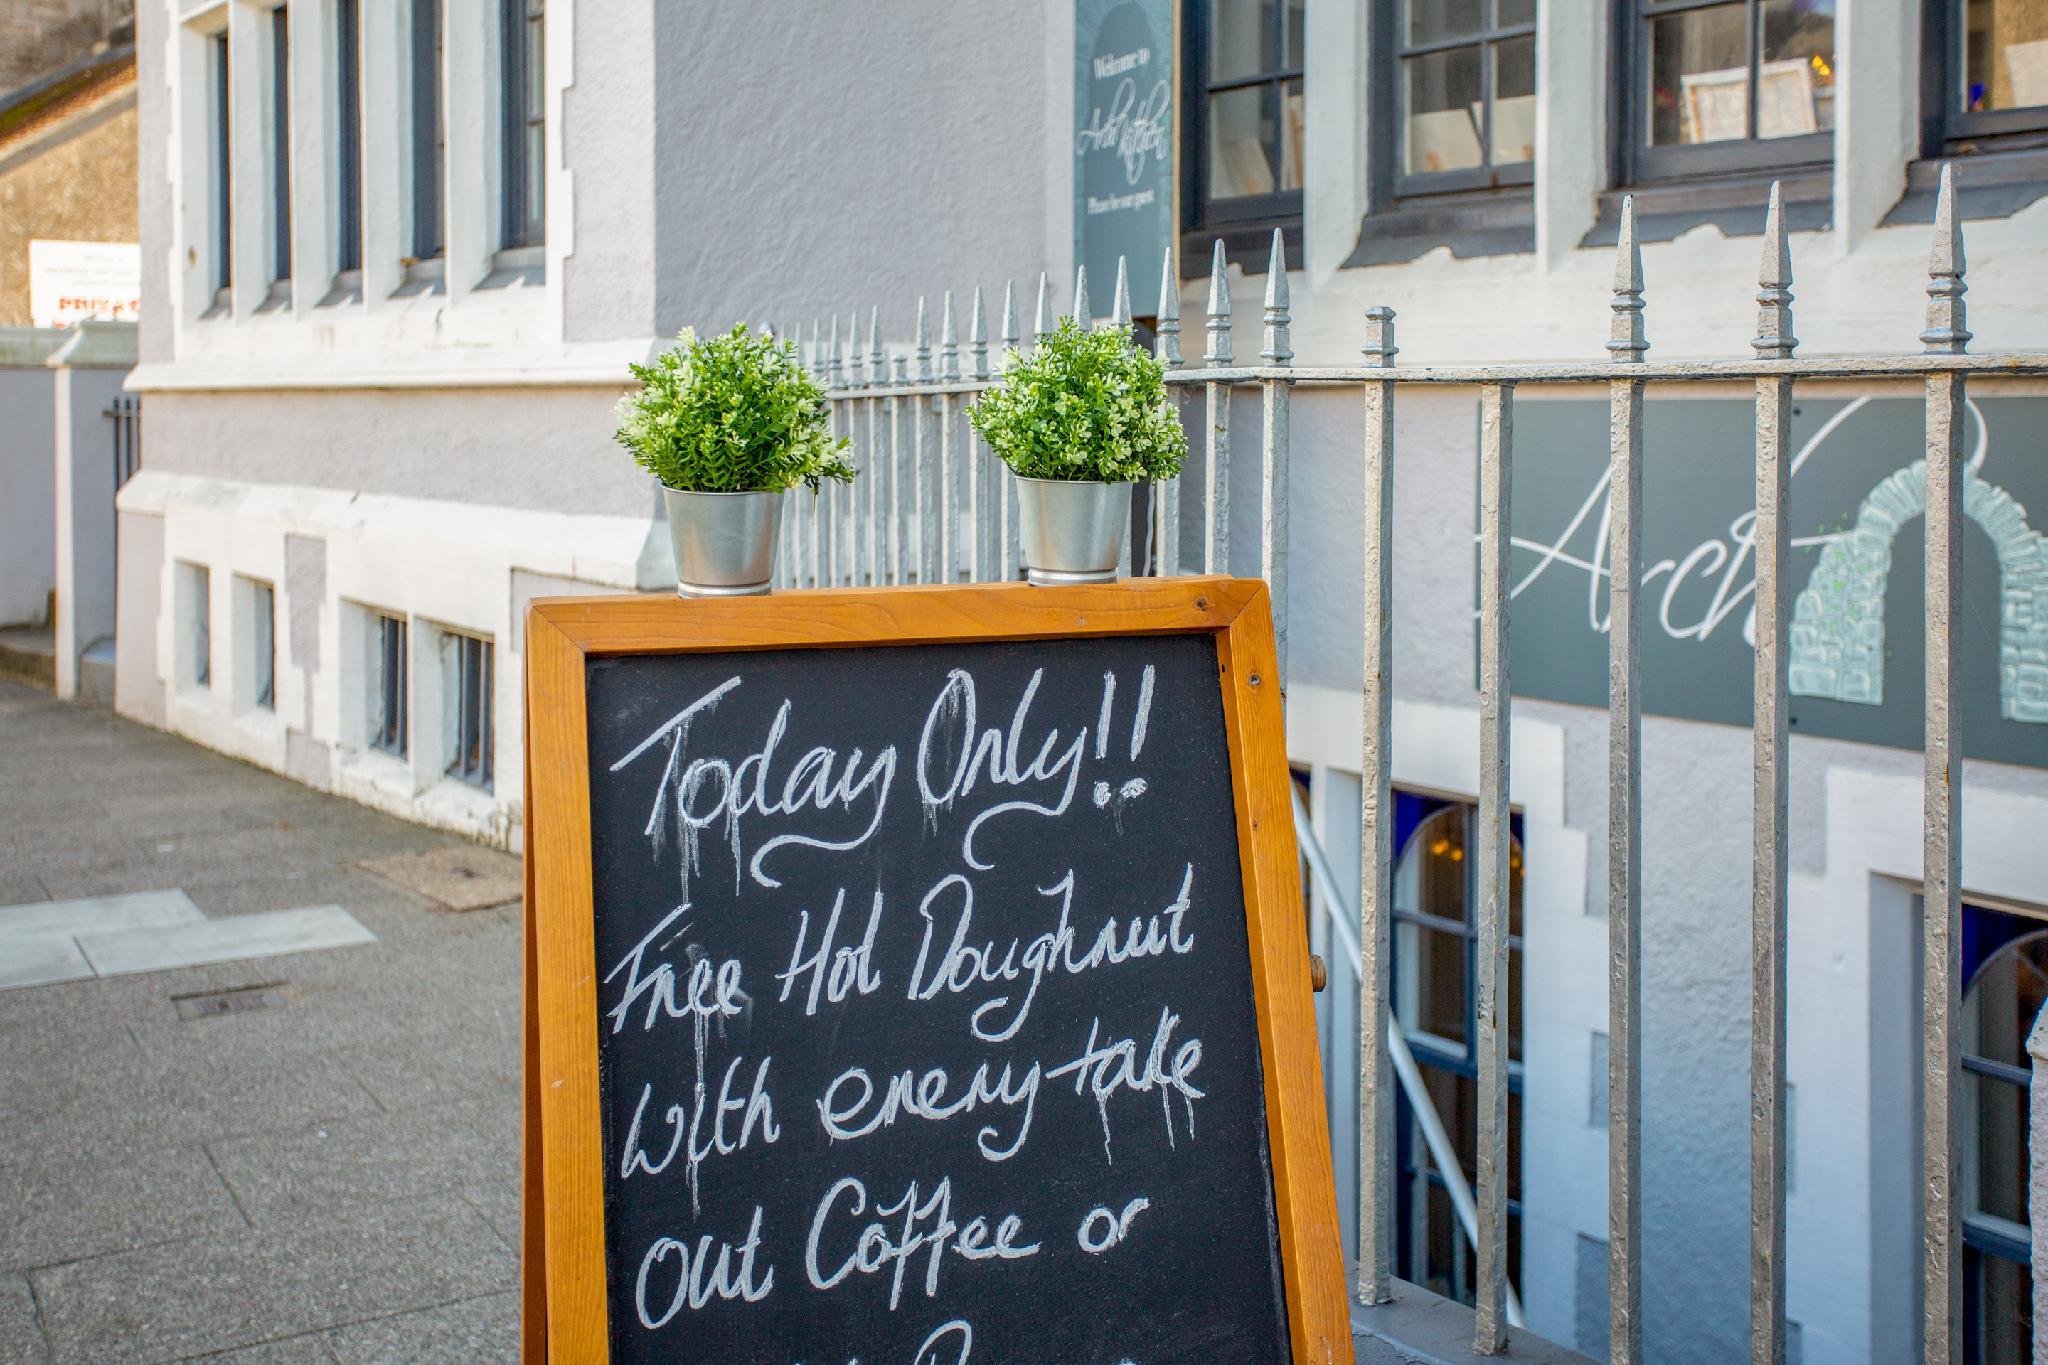 Welcome to
Arch kitchen
Please be our guest
PRIVATE
Arch
Today Only!!
Free Hot Doughnut
with every take
out Coffee or